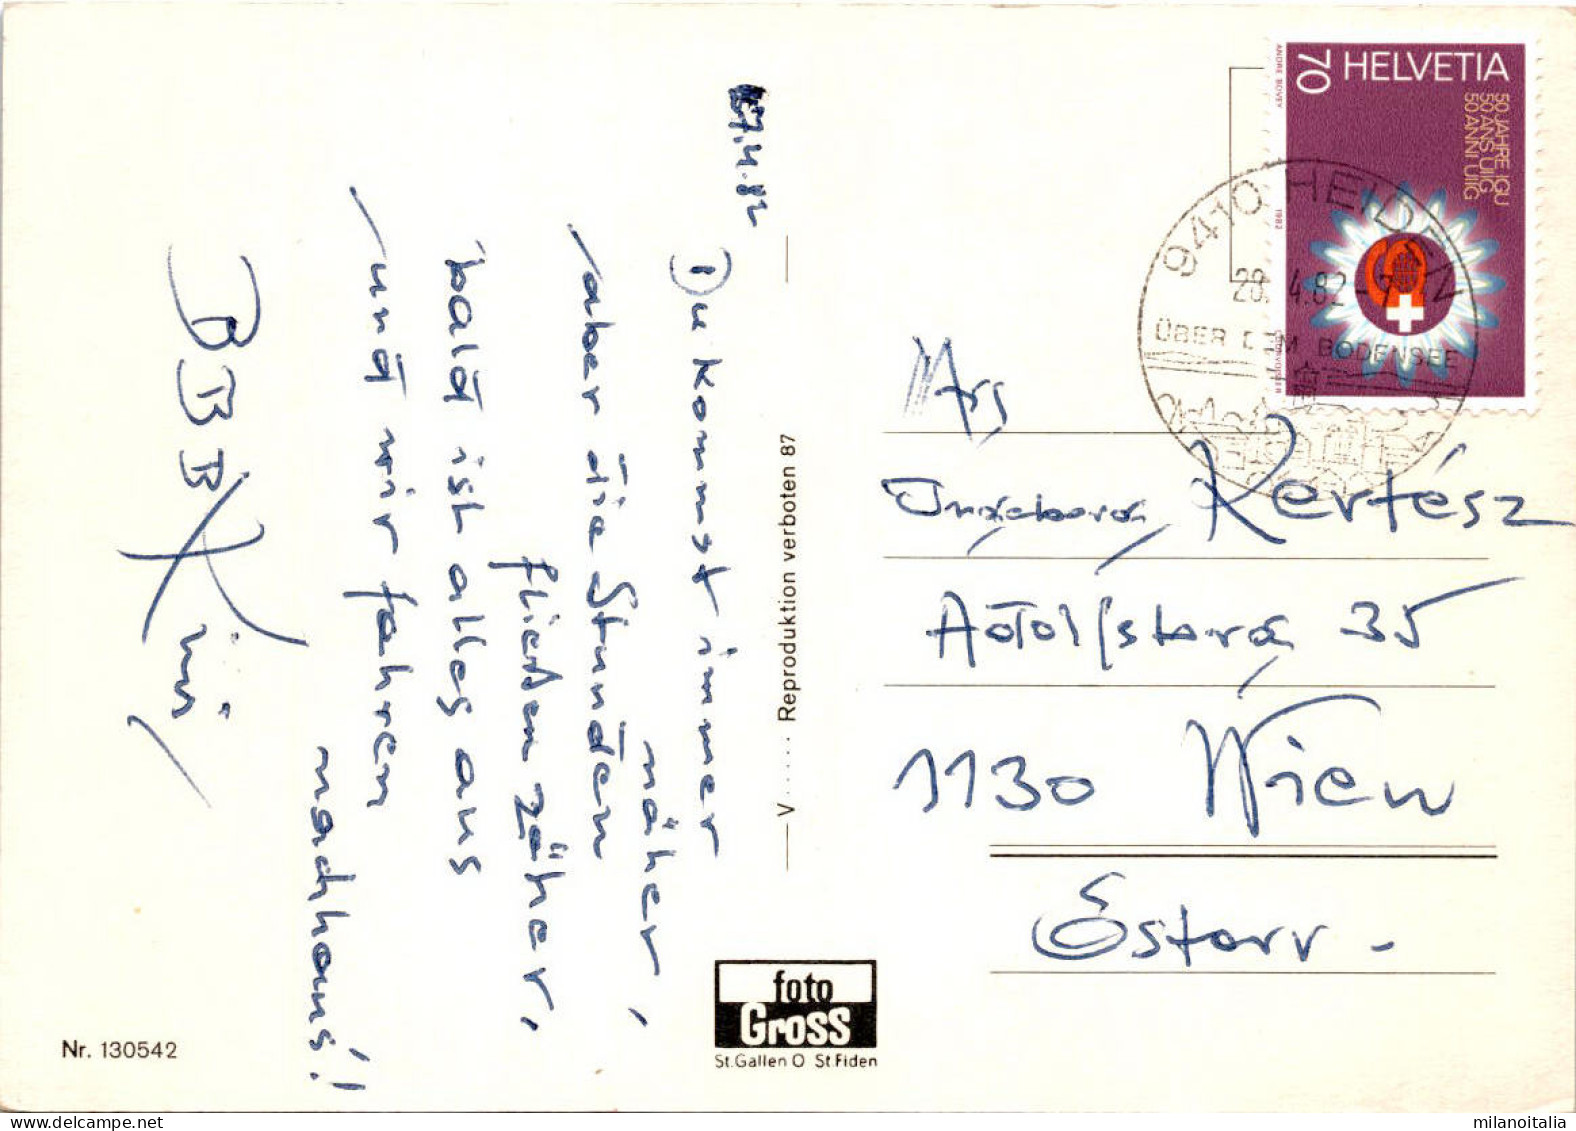 27.4.82
Du kommst immer
näher,
aber die Stunden
fließen zäher,
bald ist alles aus
und wir fahren
nachhaus!
BBB
V..... Reproduktion verboten 87
foto
Gross
St.Gallen O St.Fiden
Nr. 130542
HELVETIA
70
50 JAHRE IGU
50 ANS UIIG
50 ANNI UIIG
ANDRE BOVEY
1982
COURVOISIER
9410 HEIDEN
28.4.82-7
ÜBER DEM BODENSEE
Mrs
Ingeborg Kertész
Adolfstorg 35
1130 Wien
Österr-
milanoitalia